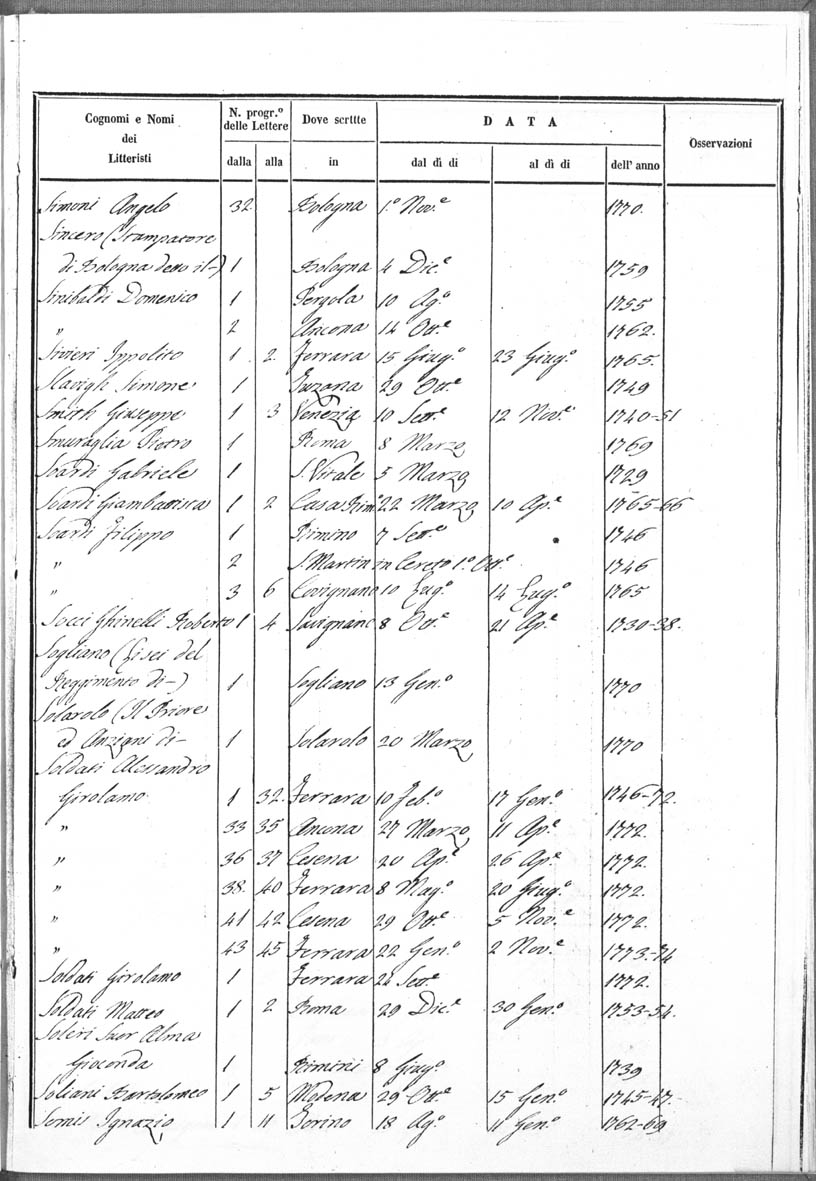 Cognomi e Nomi dei Litteristi N. progr.º delle Lettere Dove scrttte D A T A Osservazioni
dalla alla in dal dì di al dì di dell' anno
Simoni Angelo 32 Bologna 1.º Nov.e 1770.
Sincero (Stampatore
di Bologna detto il-) 1 Bologna 4 Dic.e 1759
Sinibaldi Domenico 1 Pergola 10 Ag.o 1755
" 2 Ancona 14 Ott.e 1762.
Sivieri Ippolito 1 2 Ferrara 15 Giug.o 23 Giug.o 1765.
Slavigh Simone 1 29 Ott.e 1749
Smith Giuseppe 1 3 Venezia 10 Sett.e 12 Nov.e 1740-51
Smuraglia Pietro 1 Roma 8 Marzo 1769
Soardi Gabriele 1 S. Vitale 5 Marzo 1729
Soardi Giambattista 1 2 Casa Rim 22 Marzo 10 Ap.e 1765-66
Soardi Filippo 1 Rimino 7 Sett.e 1746
" 2 S. Martin in Cereto 1.º Ott.e 1746
" 3 6 Covignano 10 Lug.o 14 Lug.o 1765
Socci Ghinelli Roberto 1 4 Savignano 8 Ott.e 21 Ap.e 1730-38.
Sogliano (Li sei del
Reggimento di-) 1 Sogliano 13 Gen.o 1770
Solarolo (Il Priore
ed Anziani di- 1 Solarolo 20 Marzo 1770
Soldati Alessandro
Girolamo 1 32. Ferrara 10 Feb.o 17 Gen.o 1746-72.
" 33 35 Ancona 27 Marzo 11 Ap.e 1772.
" 36 37 Cesena 20 Ap.e 26 Ap.e 1772.
" 38. 40 Ferrara 8 Mag.o 20 Giug.o 1772.
" 41 42 Cesena 29 Ott.e 5 Nov.e 1772.
" 43 45 Ferrara 22 Gen.o 2 Nov.e 1773-74
Soldati Girolamo 1 Ferrara 24 Sett.e 1772.
Soldati Matteo 1 2 Roma 29 Dic.e 30 Gen.o 1753-54.
Soleri Suor Alma
Gioconda 1 Rimini 8 Giug.o 1739
Soliani Bartolomeo 1 5 Modena 29 Ott.e 15 Gen.o 1745-47.
Somis Ignazio 1 11 Torino 18 Ag.o 11 Gen.o 1762-69